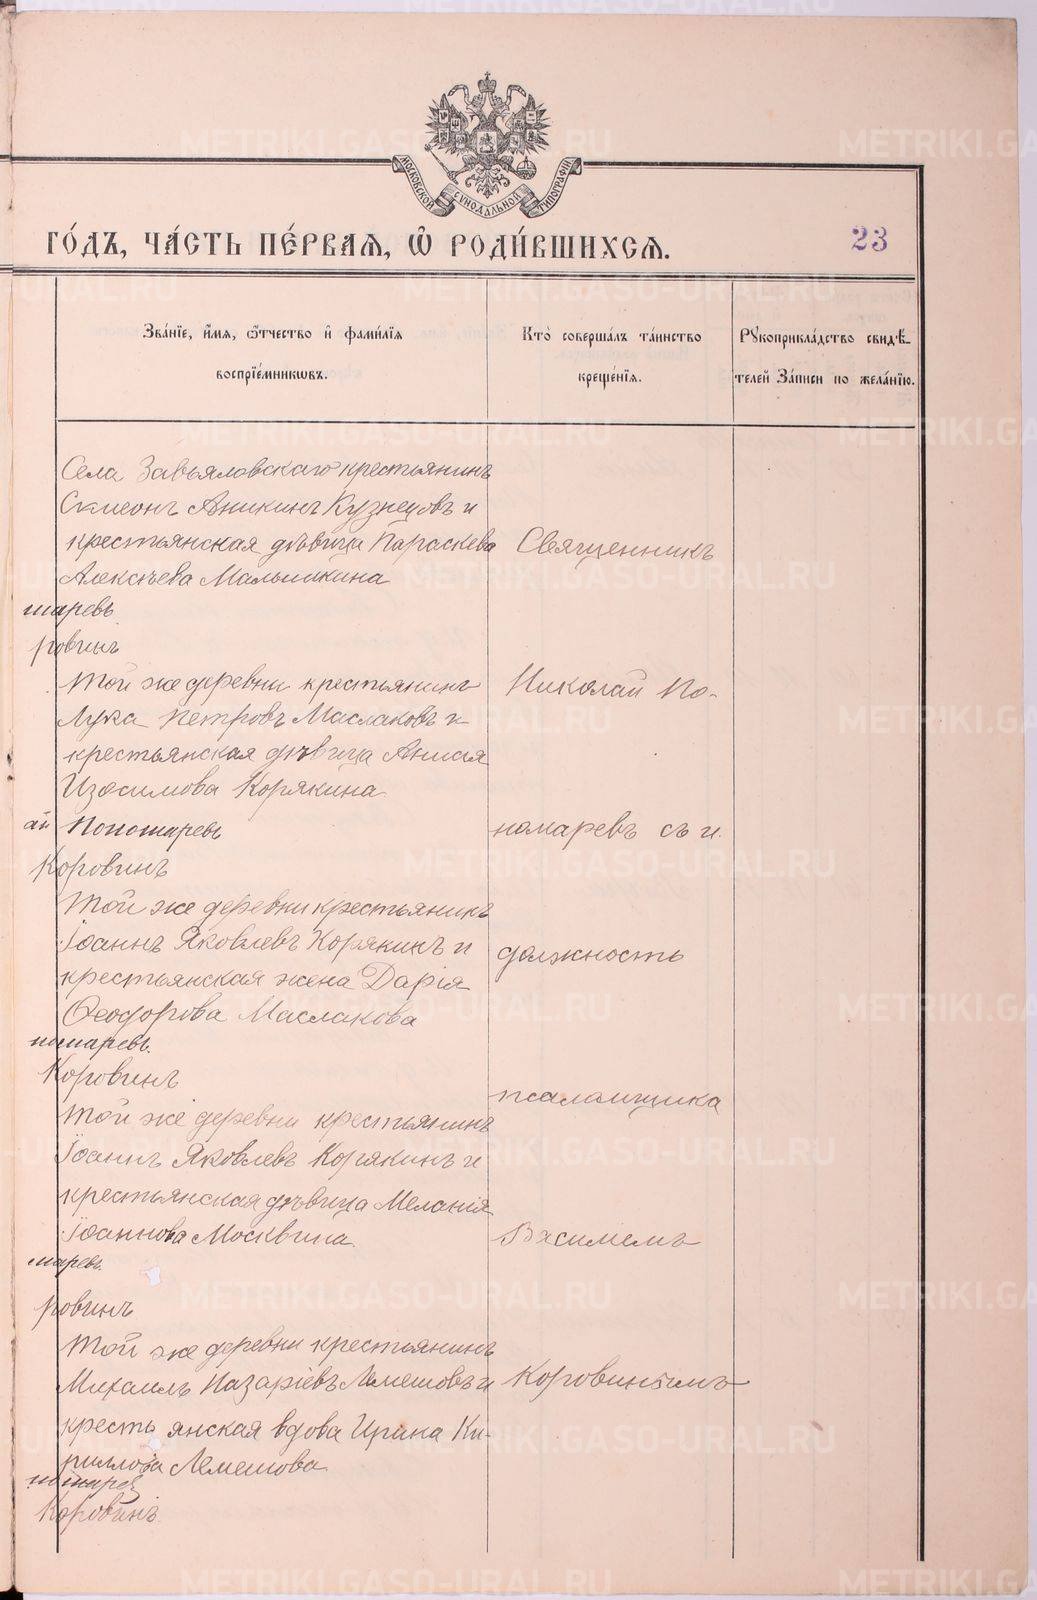 МОСКОВСКОЙ СѴНОДАЛЬНОЙ ТИПОГРАФІИ
ГО́ДЪ, ЧА́СТЬ ПЕ́РВАѦ, Ѡ҆ РОДИ́ВШИХСѦ.
23
Зва́нїе, и҆́мѧ, ѻ҆́тчество и҆ фами́лїѧ
воспрїе́мникѡвъ.
Кто̀ соверша́лъ та́инство
креще́нїѧ.
Рꙋкоприкла́дство свидѣ́-
телей За́писи по жела́нїю.
Села Завьяловскаго крестьянинъ
Симеонъ Аникинъ Кузнецовъ и
крестьянская дѣвица Параскева
Алексѣева Малышкина
Священникъ
маревъ
ровинъ
Той же деревни крестьянинъ
Николай По-
Лука Петровъ Маслаковъ и
крестьянская дѣвица Анисія
Изосимова Корякина
ай Пономаревъ
номаревъ съ и.
Коровинъ
Той же деревни крестьянинъ
Іоаннъ Яковлевъ Корякинъ и
должность
крестьянская жена Дарія
Ѳеодорова Маслакова
номаревъ.
Коровинъ
псаломщика
Той же деревни крестьянинъ
Іоаннъ Яковлевъ Корякинъ и
крестьянская дѣвица Меланія
Іоаннова Москвина
Василіемъ
маревъ.
ровинъ
Той же деревни крестьянинъ
Михаилъ Назаріевъ Лемешовъ и
Коровинымъ
крестьянская вдова Ирина Ки-
риллова Лемешова
номарев
Коровинъ.
METRIKI.GASO-URAL.RU